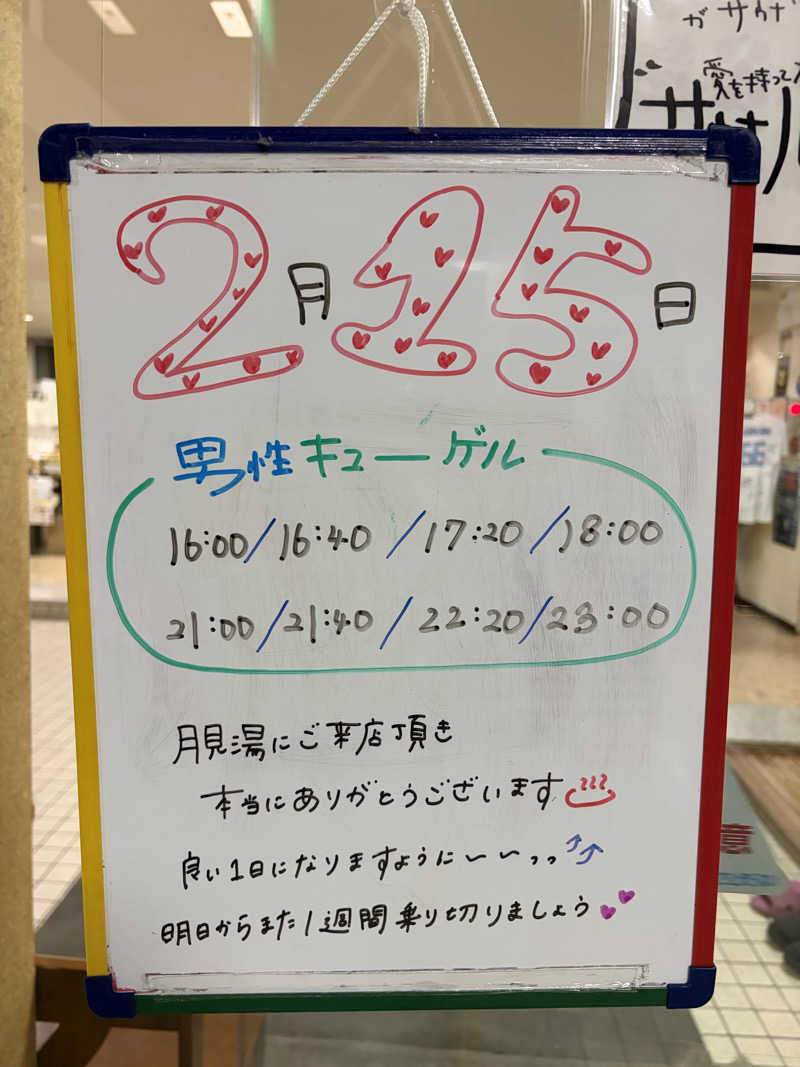 がサウナ
愛を持って
2月15日
男性キューゲル
16:00/16:40/17:20/18:00
21:00/21:40/22:20/23:00
月見湯にご来店頂き
本当にありがとうございます
良い1日になりますように〜〜っっ⤴⤴
明日からまた1週間乗り切りましょう